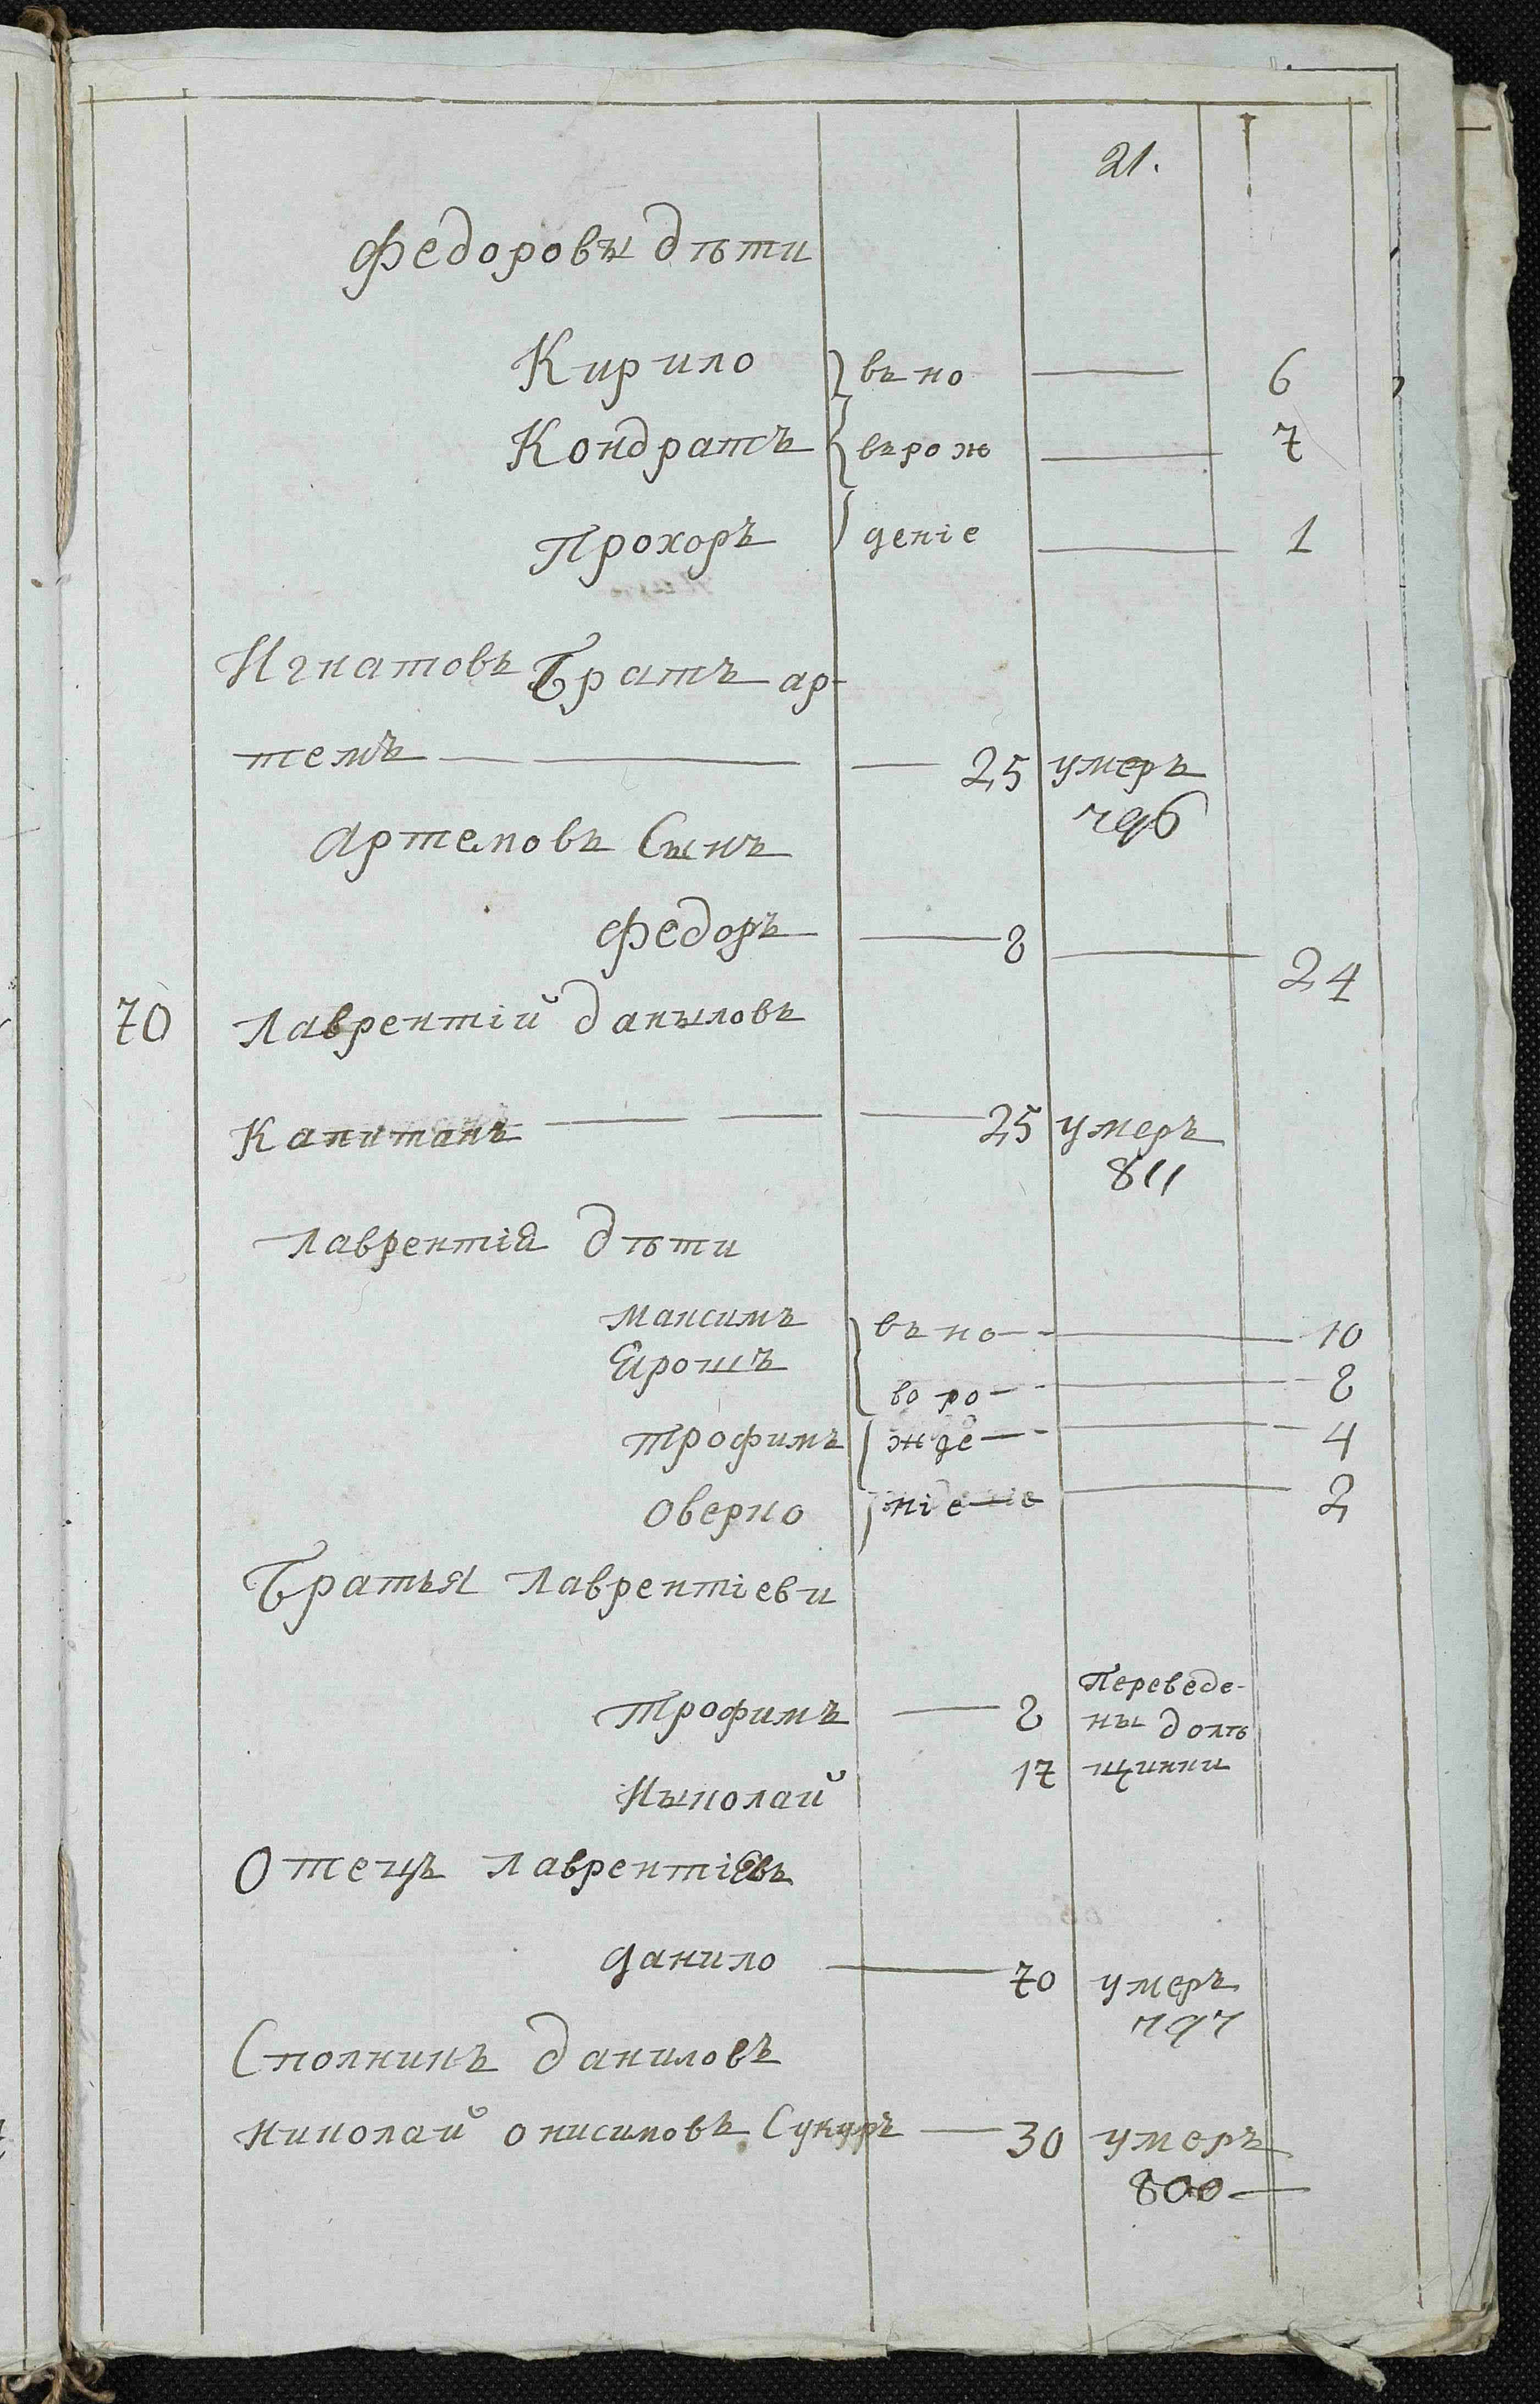 21.
Федоровы дѣти
Кирило } въ но — 6
Кондратъ { върож — 7
Прохоръ } деніе — 1
Игнатовъ Братъ ар-
темъ — — — 25 умеръ
796
Артемовъ Сынъ
Федоръ — 8 — 24
70 Лаврентій Даныловъ
Капитанъ — — — 25 умеръ
811
Лаврентія дѣти
Максимъ въ но — — 10
воро — — 8
Трофимъ жде — — 4
Оверко ніе — 2
Братья Лаврентіеви
Переведе-
Трофимъ — 8 ны долѣ
17 щинки
Ныколай
Отецъ Лаврентіевъ
Данило — 70 умеръ
797
Даниловъ
Николай Онисимовъ — 30 умеръ
800 —